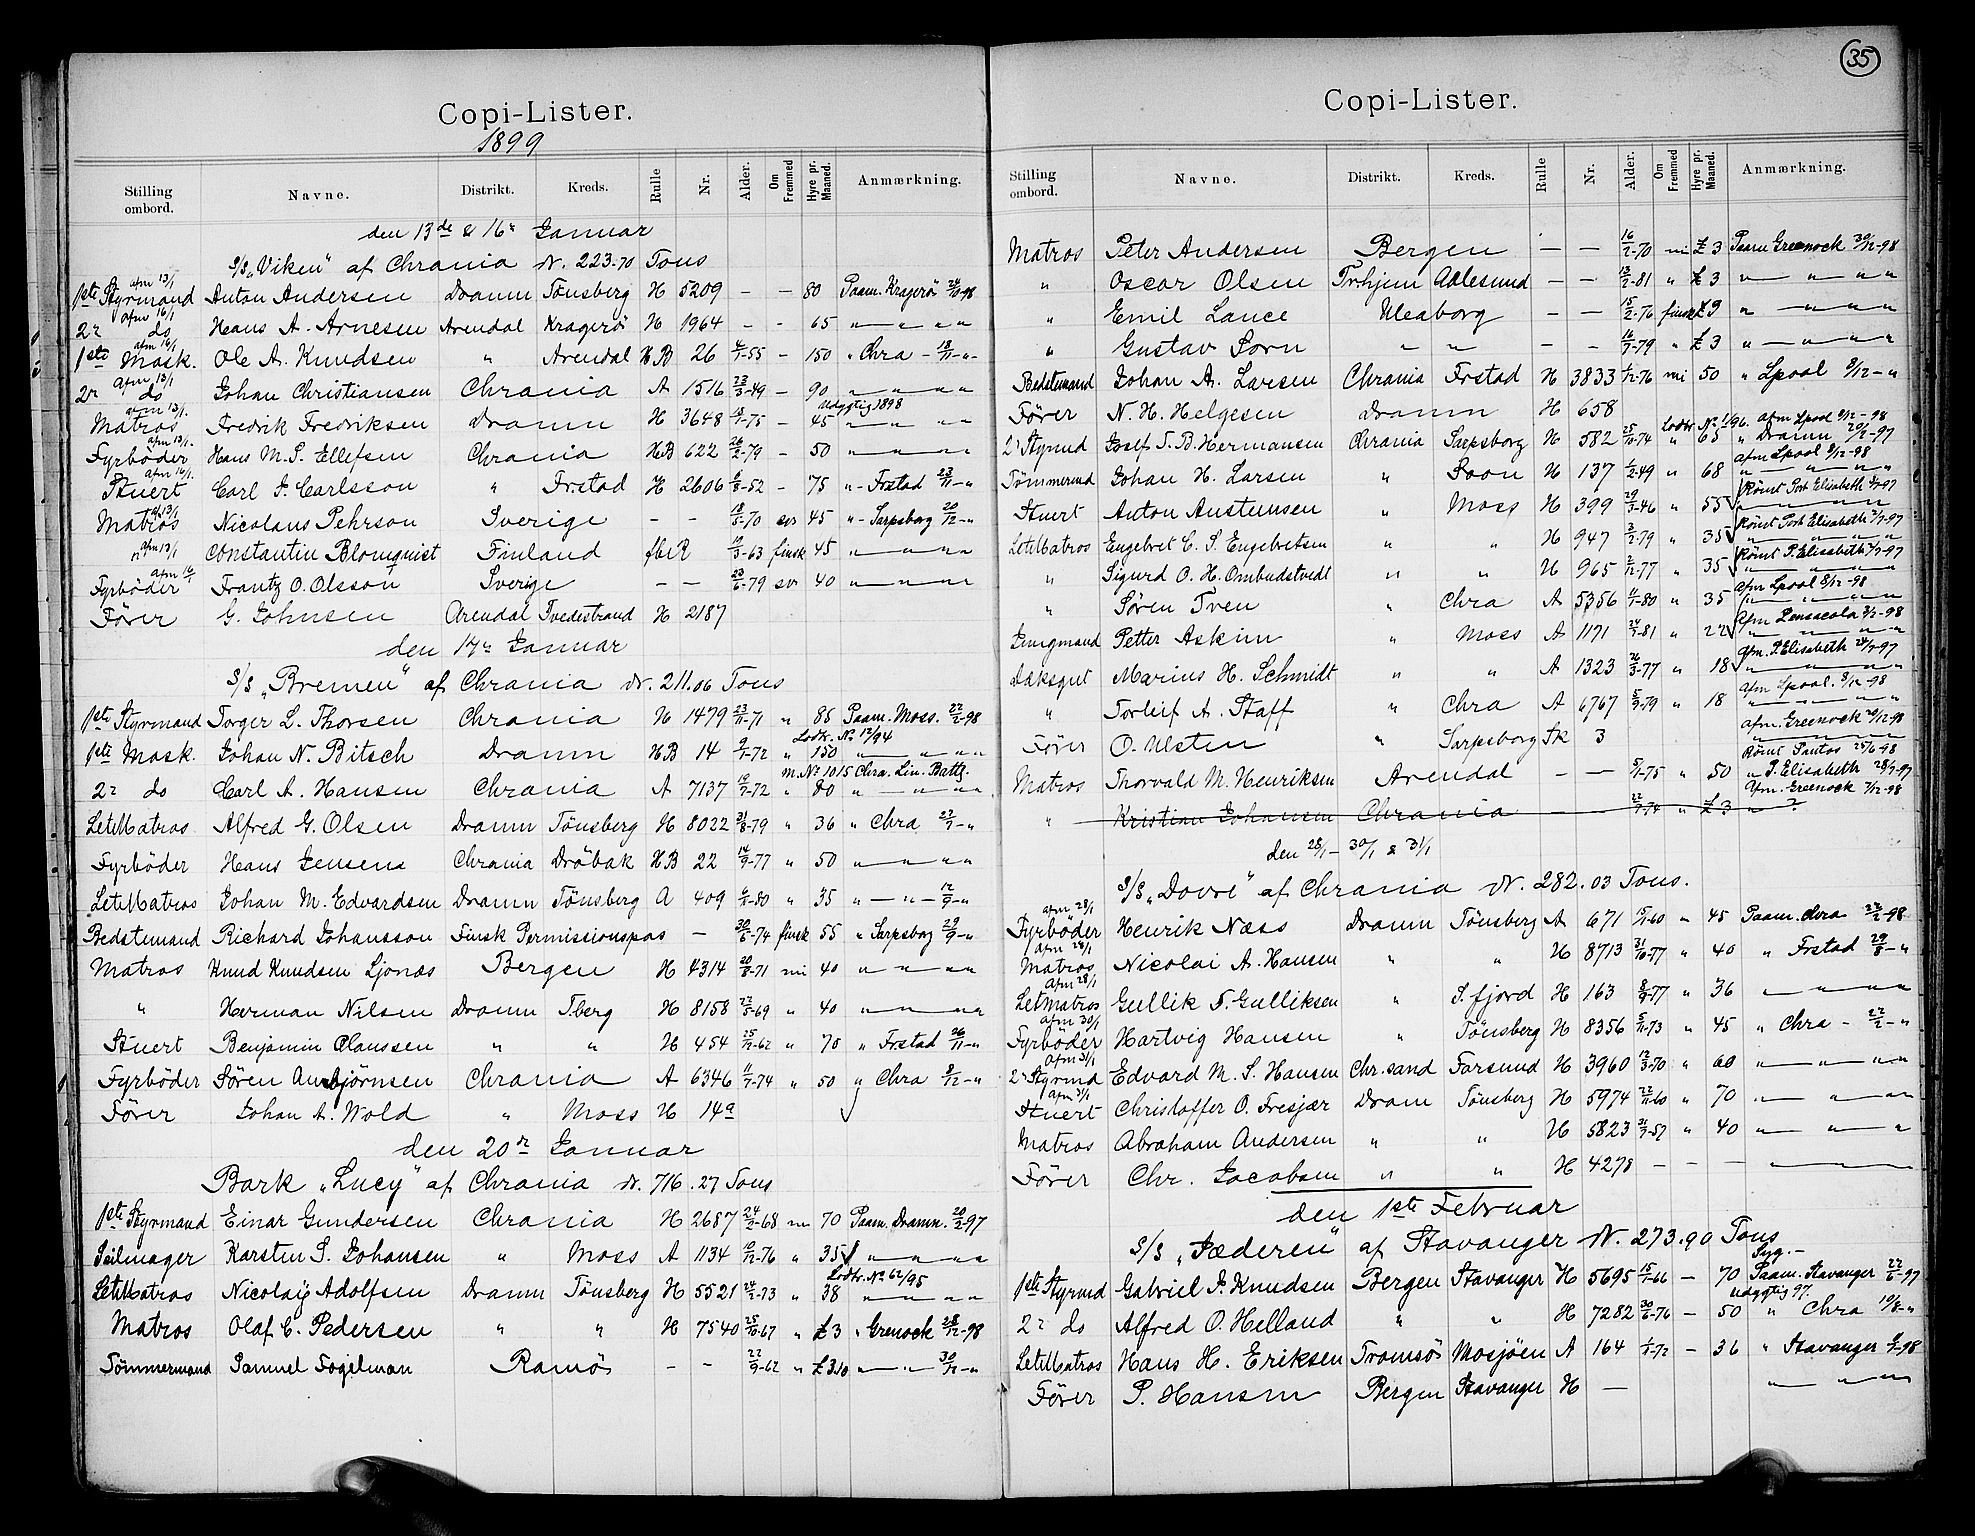 Copi-Lister.
1899
Stilling ombord. Navne. Distrikt. Kreds. Rulle Nr. Alder. Om Fremmed Hyre pr. Maaned. Anmærkning.
den 13de & 16n Januar
S/S „Viken" af Chrania Dr. 223.70 Tons
afm 13/1
1ste Styrmand Anton Andersen Dramn Tønsberg H 5209 – – 80 Paam. Kragerø
afm 16/1
2n do Hans A. Arnesen Arendal Kragerø H 1964 – – 65 " " " "
afm 14/1
1ste Mask. Ole A. Knudsen " Arendal HB 26 4/1-55 – 150 " Chra – 18/11-"-
afm 13/1
2n do Johan Christiansen Chrania A 1516 23/3-49 – 90 " " " "
afm 13/1. Udygtig 1898
Matros Fredrik Fredriksen Dramn H 3648 -75 – 45 " " " "
afm 13/1.
Fyrbøder Hans M. S. Ellefsen Chrania HB 622 26/2-79 – 50 " " " "
afm 14/1.
Stuert Carl J. Carlsson " Frstad H 2606 6/3-52 – 75 "- Frstad 23/11-"
af 13/1
Matros Nicolaus Pehrson Sverige – – 18/5-70 sv 45 "- Sarpsborg 20/12-"
afm 13/1
" Constantin Blomquist Finland fbl R 19/3-63 finsk 45 " " " "
afm 16/1
Fyrbøder Frantz O. Olsson Sverige – – 23/6-79 sv 40 " " " "
Fører G. Johnsen Arendal Tvedestrand H 2187
den 17n Januar
S/S „Bremen" af Chrania Dr. 211.06 Tons
1ste Styrmand Torger L. Thorsen Chrania H 1479 23/11-71 " 85 Paam. Moss. 22/2-98
Lodtr. No 12/94
1ste Mask. Johan N. Bitsch Dramn HB 14 9/1-72 " 150 " " " "
M. No 1015 Chra. Lin. Battl.
2n do Carl A. Hansen Chrania A 7137 19/7-72 " 80 " " " "
LetMatros Alfred G. Olsen Dramn Tønsberg H 8022 31/8-79 " 36 " Chra 27/7-"
Fyrbøder Hans Jensen Chrania Drøbak HB 22 14/9-77 " 50 " " " "
LetMatros Johan M. Edvardsen Dramn Tønsberg A 409 -80 " 35 " – " – 12/9-"
Bedstemand Richard Johansson Finsk Permissionspas – 30/6-74 finsk 55 " Sarpsborg 29/9-"
Matros Knud Knudsen Ljonæs Bergen H 4314 20/8-71 nei 40 " " " "
" Herman Nilsen Dramn Tberg H 8158 22/5-69 " 40 " " " "
Stuert Benjamin Claussen " " H 454 25/12-62 " 70 " Frstad 26/11-"
Fyrbøder Søren Ansbjørnsen Chrania A 6346 11/7-74 " 50 " Chra 9/12-"
Fører Johan A. Wold " Moss H 14a
den 20n Januar
Bark „Lucy" af Chrania Dr. 716.27 Tons
1ste Styrmand Einar Gundersen Chrania H 2687 24/2-68 nei 70 Paam. Dramn. 20/2-97
Seilmager Karsten S. Johansen " Moss A 1134 10/12-76 " 35 " " " "
Lodtr. No 62/95
LetMatros Nicolaij Adolfsen Dramn Tønsberg H 5521 24/2-73 " 38 " " " "
Matros Olaf C. Pedersen " " H 7540 25/10-67 " £3 " Grenock 28/12-98
Tømmermand Samuel Fogelman Ramsö – – 22/9-62 " £3.10 " " 30/12-"
35
Copi-Lister.
Stilling ombord. Navne. Distrikt. Kreds. Rulle Nr. Alder. Om Fremmed Hyre pr. Maaned. Anmærkning.
Matros Peter Andersen Bergen – – 16/2-70 nei £3 Paam Greenock 30/12-98
" Oscar Olsen Trhjem Aalesund – – 13/2-81 " £3 " " " "
" Emil Lance Uleaborg – – 15/2-76 finsk £3 " " " "
" Gustav Sorn " " – – 16/7-79 " £3 " " " "
Bedstemand Johan A. Larsen Chrania Frstad H 3833 1/12-76 nei 50 " Lpool 8/12-"
Fører N. H. Helgesen Dramn H 658
Lodtr No 1/96. afm Lpool 8/12-98
2n Styrmd Josef T. B. Hermansen Chrania Sarpsborg H 582 25/10-74 " 65 " Dramn 20/2-97
afm Lpool 8/12-98
Tømmermd Johan H. Larsen " Soon H 137 1/2-49 " 68 " " " "
Rømt Port Elisabeth -97
Stuert Anton Austemsen " Moss H 399 29/3-46 " 55 " " " "
Rømt Port Elisabeth -97
LetMatros Engebret C. S. Engebretsen " " H 947 2/2-79 " 35 " " " "
Rømt P. Elisabeth -97
" Sigurd O. H. Ombudstvedt " " H 965 2/12-77 " 35 " " " "
afm Lpool 8/12-98
" Søren Tven " Chra A 5356 -80 " 35 " " " "
Afm Pensacola -98
Jungmand Petter Askim " Moss A 1171 24/2-81 " 22 " " " "
Afm. P. Elisabeth 24/7-97
Dæksgut Marius H. Schmidt " " A 1323 26/3-77 " 18 " " " "
afm Lpool. 8/12-98
" Torleif A. Staff " Chra A 6767 5/9-79 " 18 " " " "
afm. Greenock 29/12-98
Fører O. Ulsten " Sarpsborg Sk 3 " " " "
Rømt Santos 25/6-98
Matros Thorvald M. Henriksen Arendal – – 5/1-75 " 50 " P. Elisabeth 28/7-97
Afm. Greenock 7/12-98
" Kristian Johansen Chrania – – 22/7-74 " £3 " ?
den 28/1 – 30/1 & 31/1
S/S „Dovre" af Chrania Dr. 282.03 Tons.
afm 28/1
Fyrbøder Henrik Næss Dramn Tønsberg A 671 15/1-60 " 45 Paam. Chra 22/2-98
afm 28/1
Matros Nicolai A. Hansen " " H 8713 31/10-77 " 40 " Frstad 29/8-"
afm 28/1
Letmatros Gullik T. Gulliksen " S. fjord H 163 8/9-77 " 36 " " " "
afm 30/1
Fyrbøder Hartvig Hansen " Tønsberg H 8356 5/11-73 " 45 " Chra – 22/2-"
afm 31/1
2n Styrmd Edvard M. S. Hansen Chr.sand Farsund H 3960 12/3-70 " 60 " " " "
afm 31/1
Stuert Christoffer O. Fresjær Dram Tønsberg H 5974 22/11-60 " 70 " " " "
Matros Abraham Andersen " " H 5823 31/7-57 " 40 " " "
Fører Chr. Jacobsen " " H 4278 – – – " "
den 1ste Februar
S/S „Jæderen" af Stavanger Dr. 273.90 Tons
Syg.–
1ste Styrmd Gabriel J. Knudsen Bergen Stavanger H 5695 15/1-66 – 70 Paam. Stavanger 22/6-97
Udygtig 97.
2n do Alfred O. Helland " " H 7282 30/6-76 – 50 " Chra 19/8-"
LetMatros Hans H. Eriksen Tromsø Mosjøen A 164 -72 – 36 " Stavanger -98
Fører P. Hansen Bergen Stavanger H – " " "